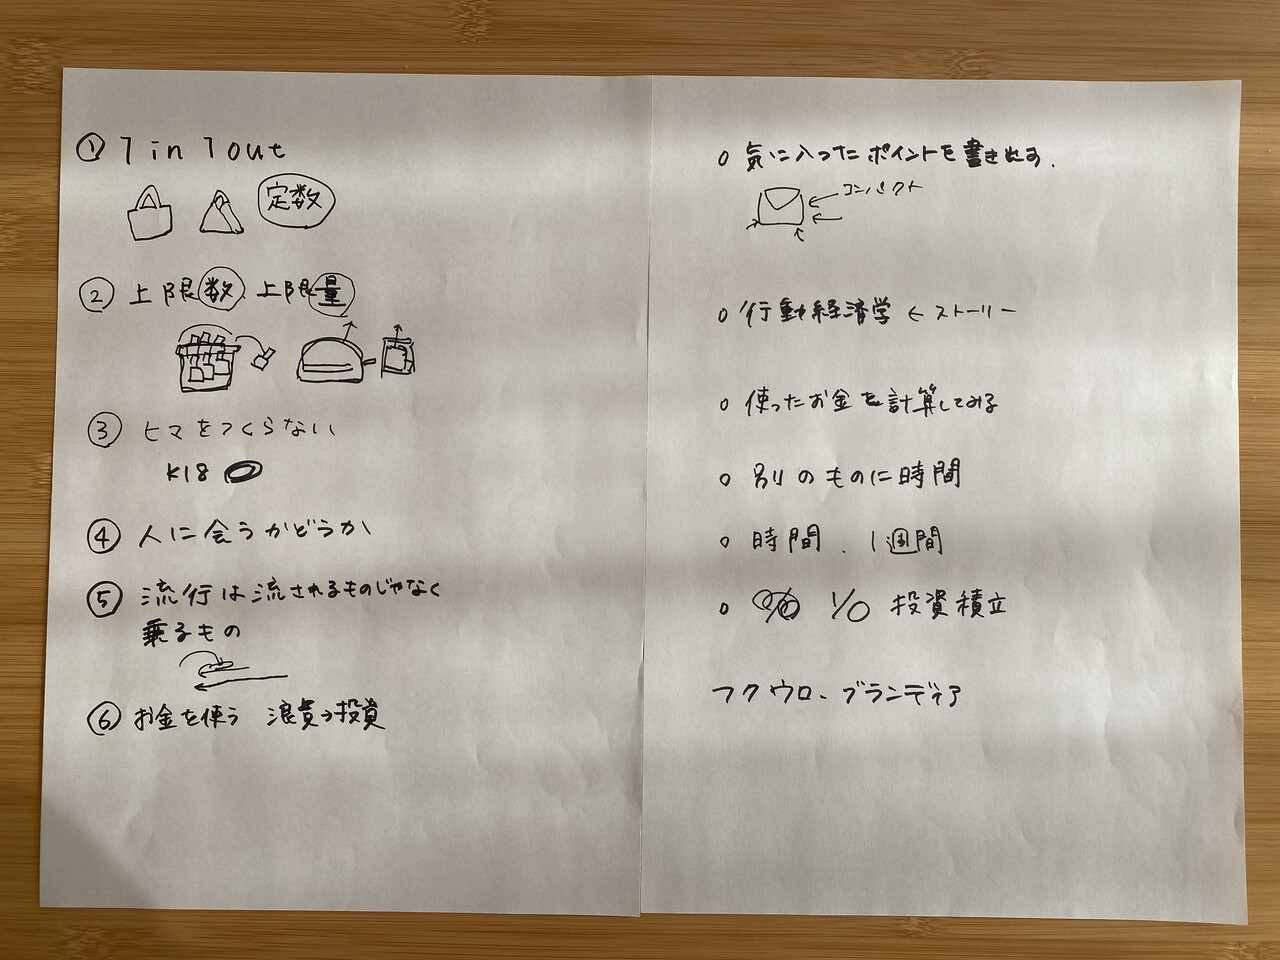 ① 1 in 1 out
定数
② 上限数 上限量
③ ヒマをつくらない
K18
④ 人に会うかどうか
⑤ 流行は流されるものじゃなく
乗るもの
⑥ お金を使う 浪費→投資
○ 気に入ったポイントを書き出す.
コンパクト
○ 行動経済学 ← ストーリー
○ 使ったお金を計算してみる
○ 別のものに時間
○ 時間. 1週間
○ 1/0 投資積立
フクウロ、ブランディア